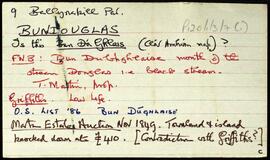 9 Ballynakill Par.
BUNDOUGLAS
Is this Bun Dúghlas (Clár Amhráin ) ?
FNB: Bun Dubhghlaise mouth of
stream Douglas i.e. black stream.
T. Martin, prop.
Griffiths Law Life.
O.S. LIST '86 BUN DÚGHLAISE
Martin Estates Auction Nov 1849. Townland & island
knocked down at £410. [Contradiction with Griffiths?]
C